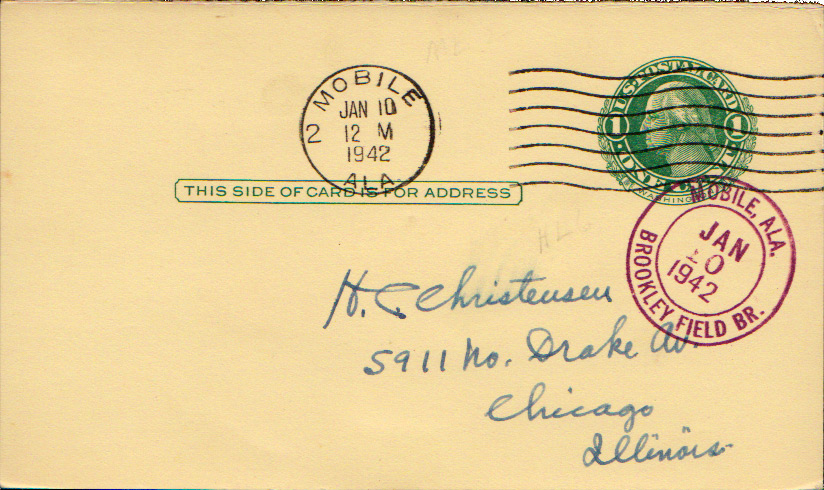 MOBILE
JAN 10
2 12 M
1942
ALA.
UNITED STATES POSTAL CARD
1 1
ONE CENT
WASHINGTON
THIS SIDE OF CARD IS FOR ADDRESS
MOBILE, ALA.
JAN
10
1942
BROOKLEY FIELD BR.
H. C. Christensen
5911 No. Drake Av.
Chicago
Illinois